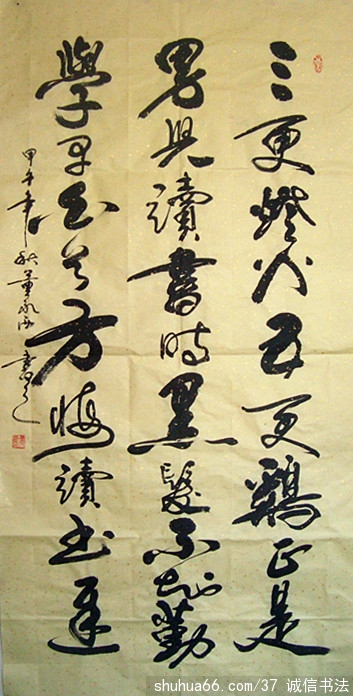 三更燈火五更鷄正是
男兒讀書時黑髮不知勤
學早白首方悔讀書遲
甲午年秋董永書之
shuhua66.com/37 诚信书法